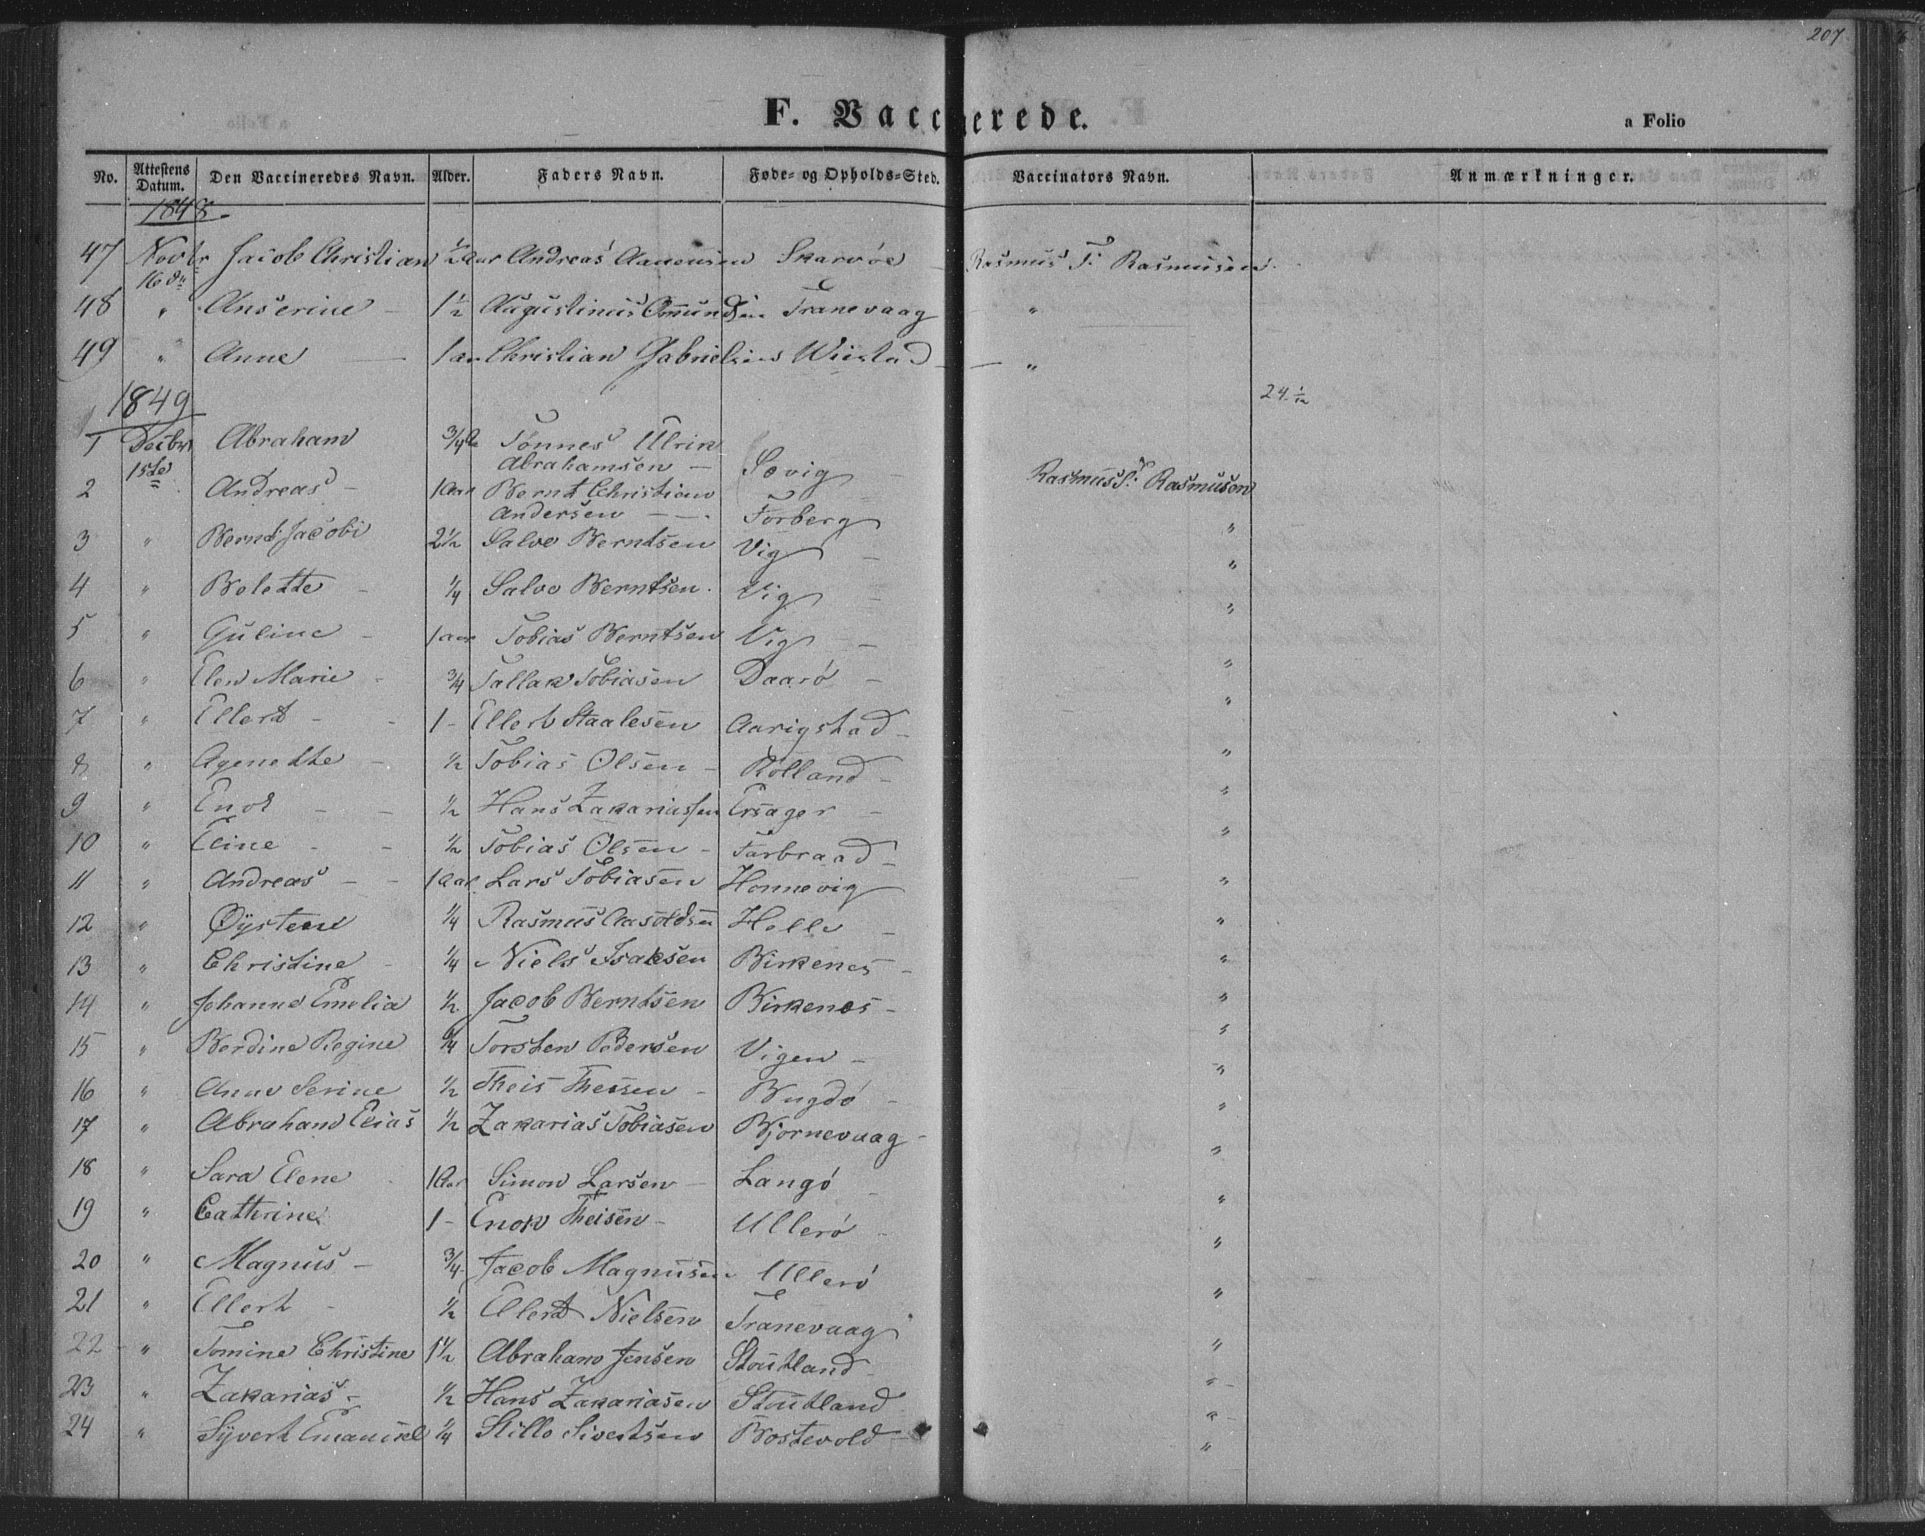 207
F. Vaccinerede.
a Folio
No. Attestens Datum. Den Vaccineredes Navn. Alder. Faders Navn. Føde- og Opholds-Sted. Vaccinators Navn. Anmærkninger.
1848
47 Novbr 16de Jacob Christian ½ Aar Andreas Aanensen Skarvøe Rasmus F. Rasmusen
48 " Anserine - 1½ Augustinus Omundsen Tranevaag "
49 " Anne - 1 aar Christian Gabrielsens Wiistad - "
1849
24 1/12
1 Decbr 15de Abraham ¾ Tønnes Ulrik Abrahamsen - Søvig - Rasmus F. Rasmusen
2 Andreas - 1 Aar Bernt Christian Andersen - Forberg "
3 " Bernt Jacobi 2½ Salve Berntsen Vig - "
4 " Belette - ¼ Salve Berntsen Vig - "
5 " Guline - 1 aar Tobias Berntsen Vig - "
6 " Elen Marie - ¾ Tallak Tobiasen Daarø - "
7 " Ellert - 1 - Ellert Staalesen Aarigstad - "
8 " Agenethe - ½ Tobias Olsen - Rolland - "
9 " Enok - ½ Hans Zakariassen Ersager - "
10 " Eline - ½ Tobias Olsen - Farbraad - "
11 " Andreas - 1 Aar Lars Tobiasen Honnevig "
12 " Øysten ¼ Rasmus Aasoldsen Helle - "
13 " Christine - ¼ Niels Isaksen Birkenes - "
14 " Johanne Emelia ½ Jacob Berntsen Birkenes - "
15 " Berdine Regine ¼ Torsten Pedersen Vigen - "
16 " Anne Serine ½ Theis Thessen - Bugdø - "
17 " Abraham Elias ½ Zakarias Tobiasen Bjornevaag - "
18 " Sara Elene 1 Aar Simon Larsen - Langø - "
19 " Cathrine 1 - Enok Theisen - Ullerø - "
20 " Magnus - ¾ Jacob Magnusen Ullerø "
21 " Ellert - ½ Ellert Nielsen Tranevaag "
22 " Tomine Christine 1½ Abraham Jensen Stoutland - "
23 " Zakarias - ½ Hans Zakariasen Stoutland "
24 " Syvert Emanuel ¼ Stille Sivertsen Bostevold "